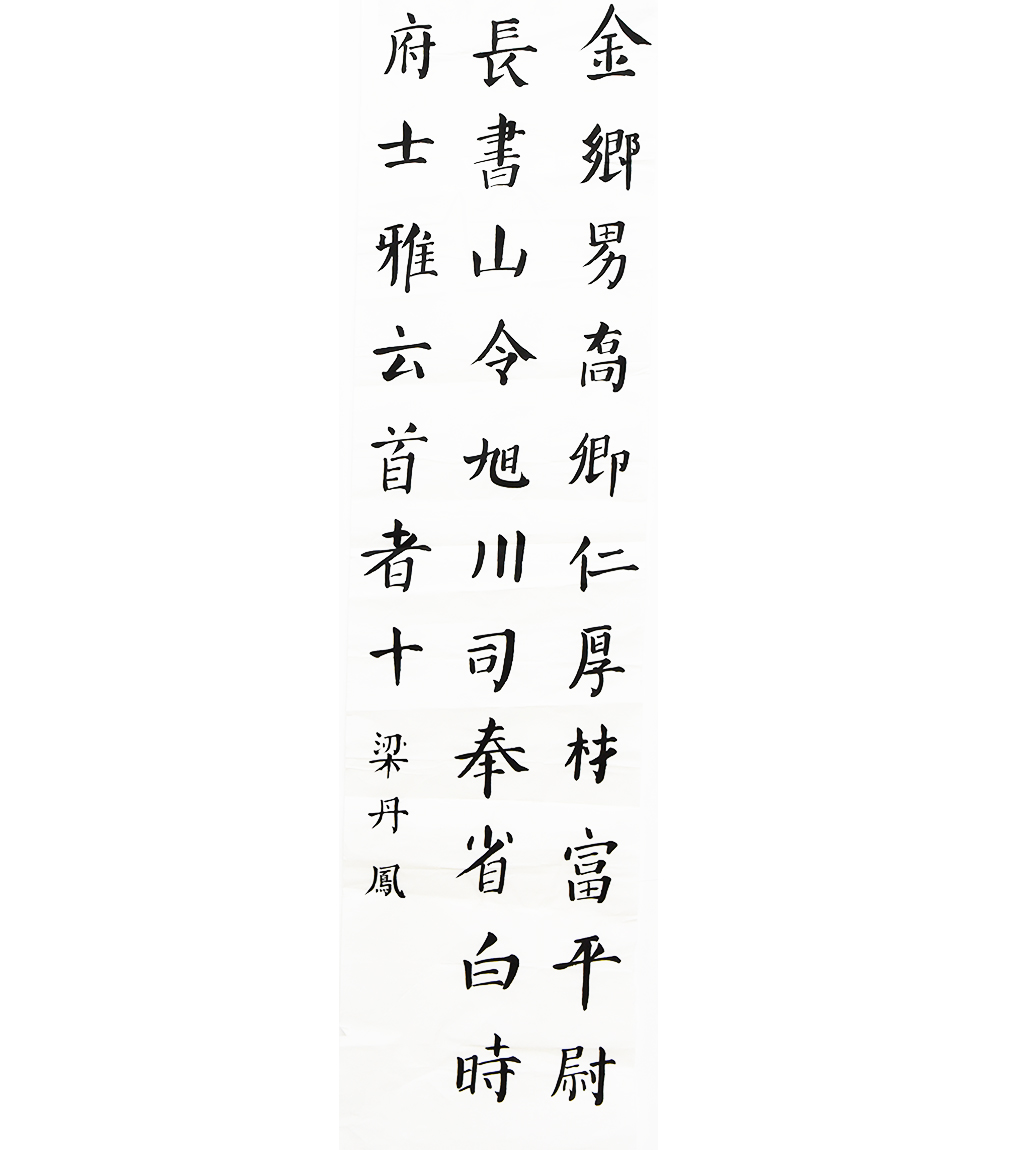 金鄉男高卿仁厚材富平尉
長書山令旭川司奉省白時
府士雅云首者十
梁丹鳳